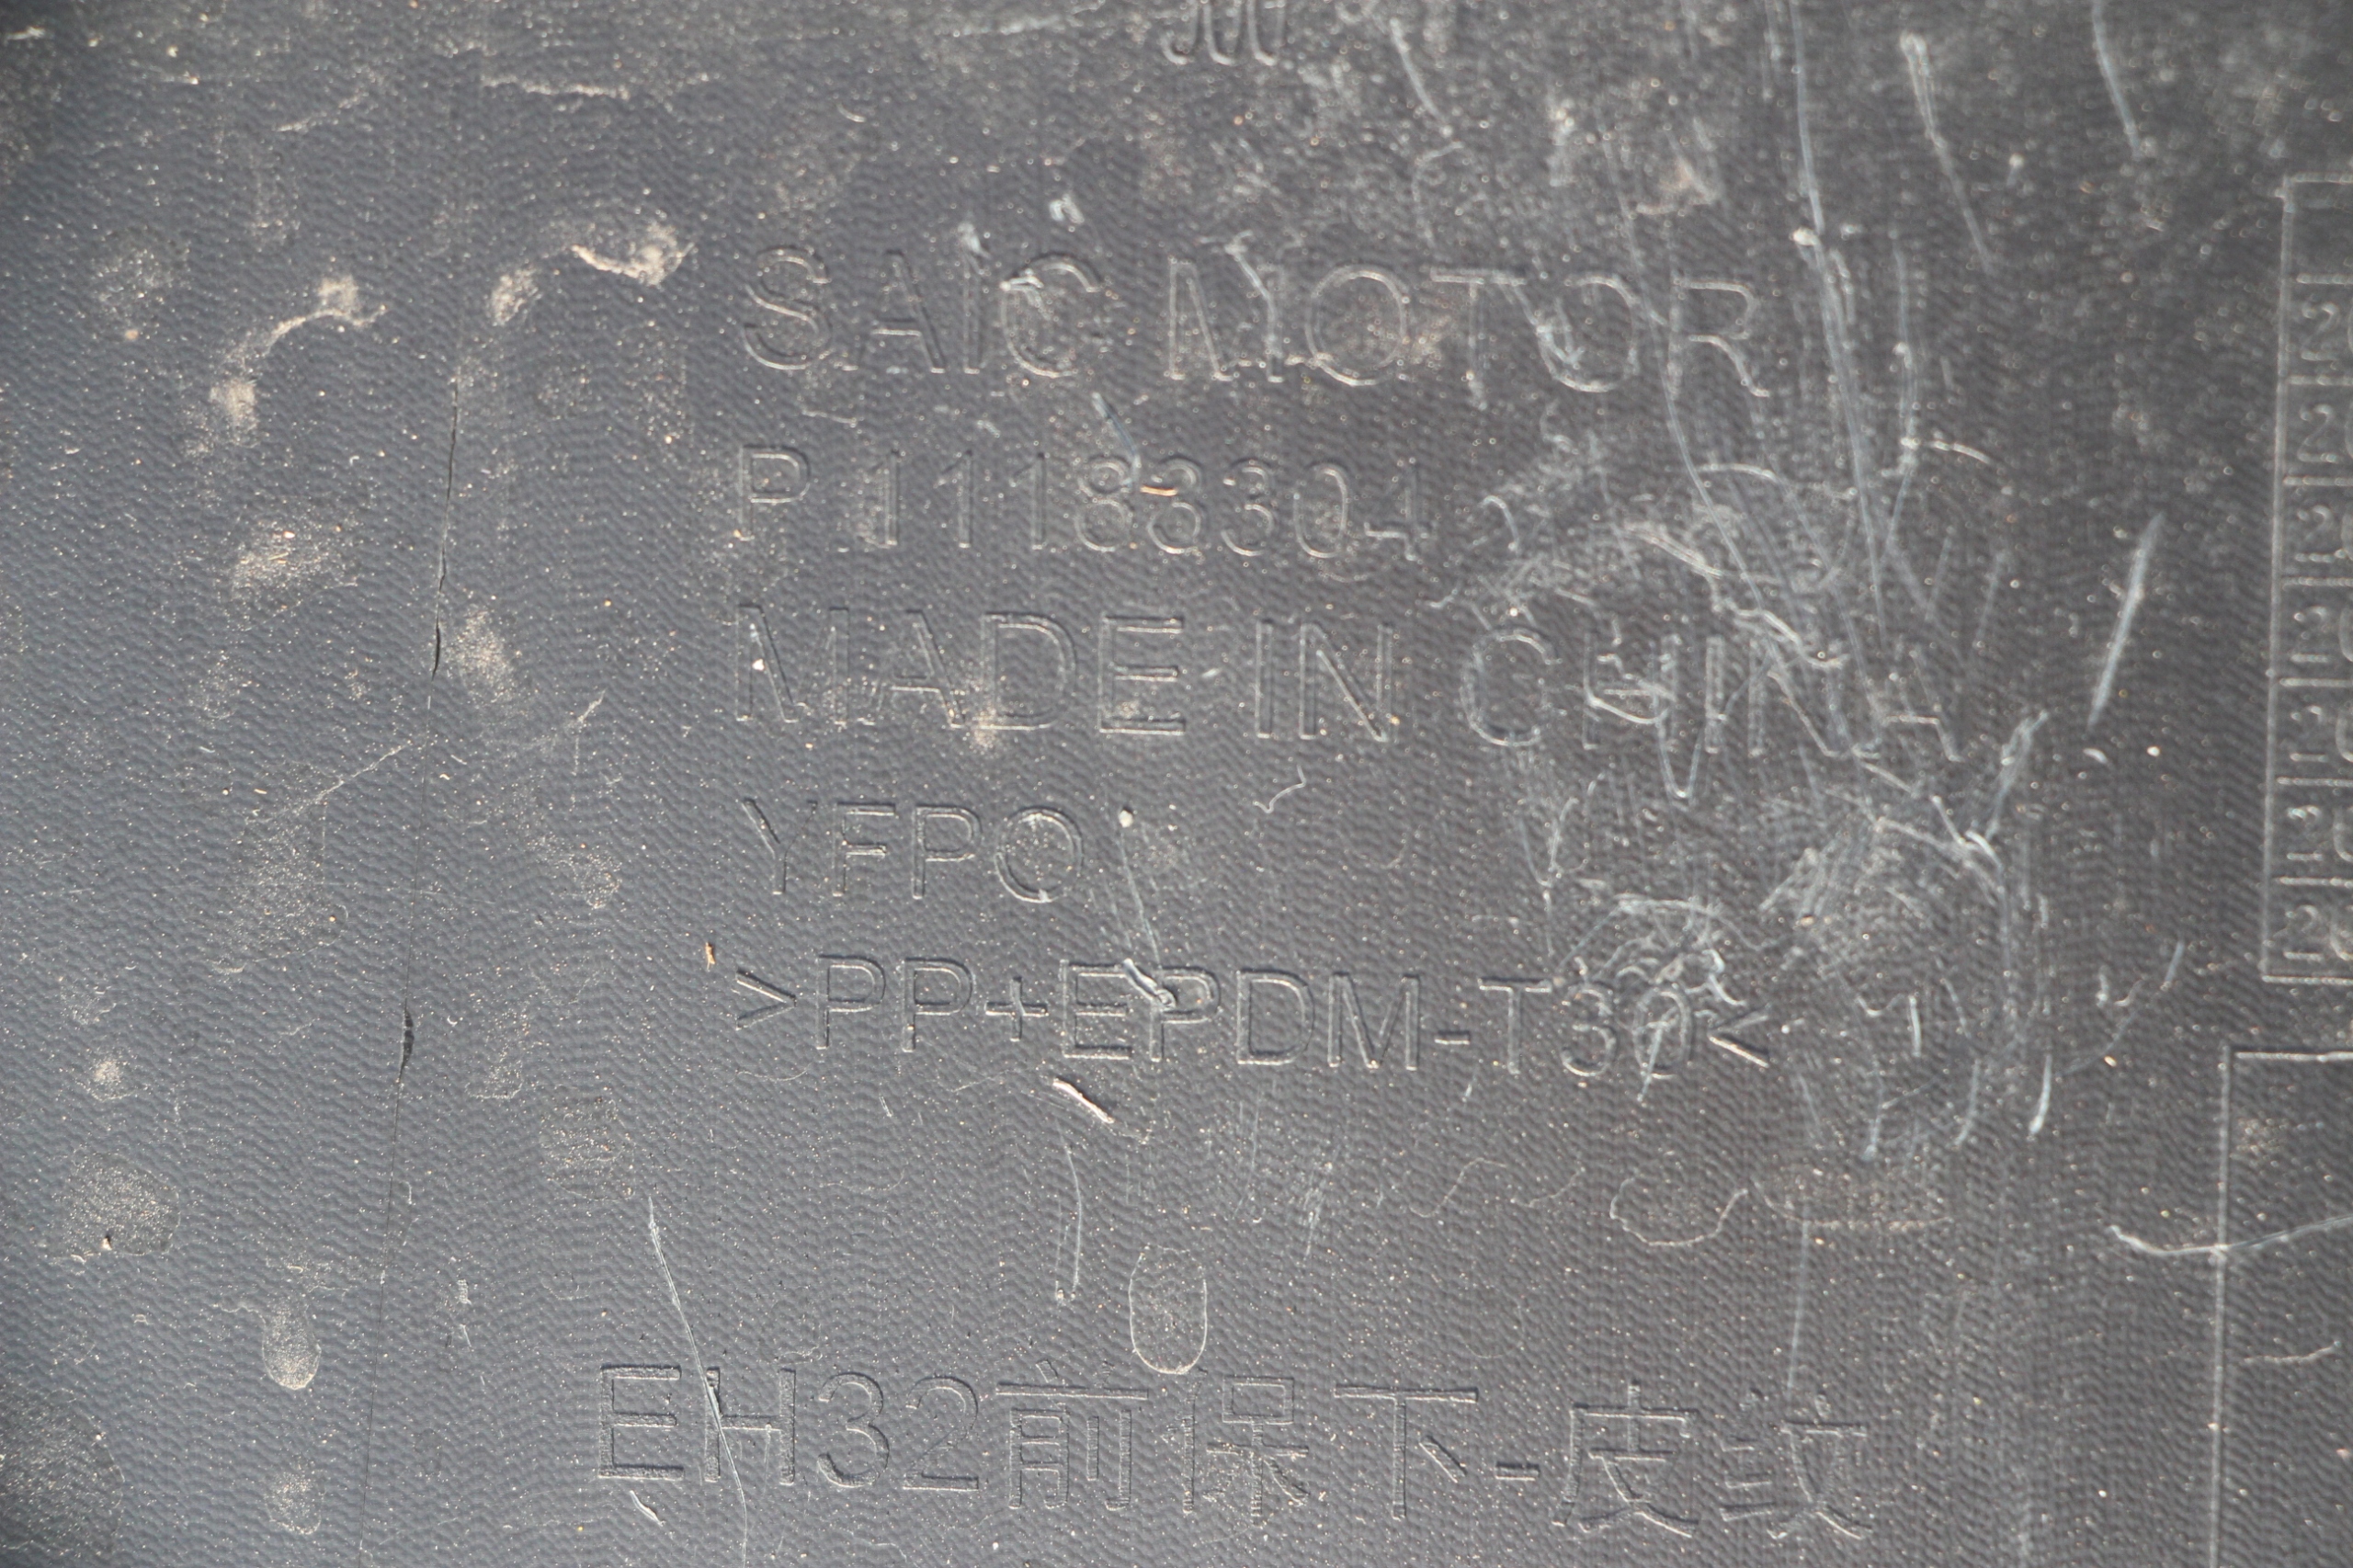 SAIC MOTOR
P 11183304
MADE IN CHINA
YFPO
>PP+EPDM-T30<
EH32前保下-皮纹